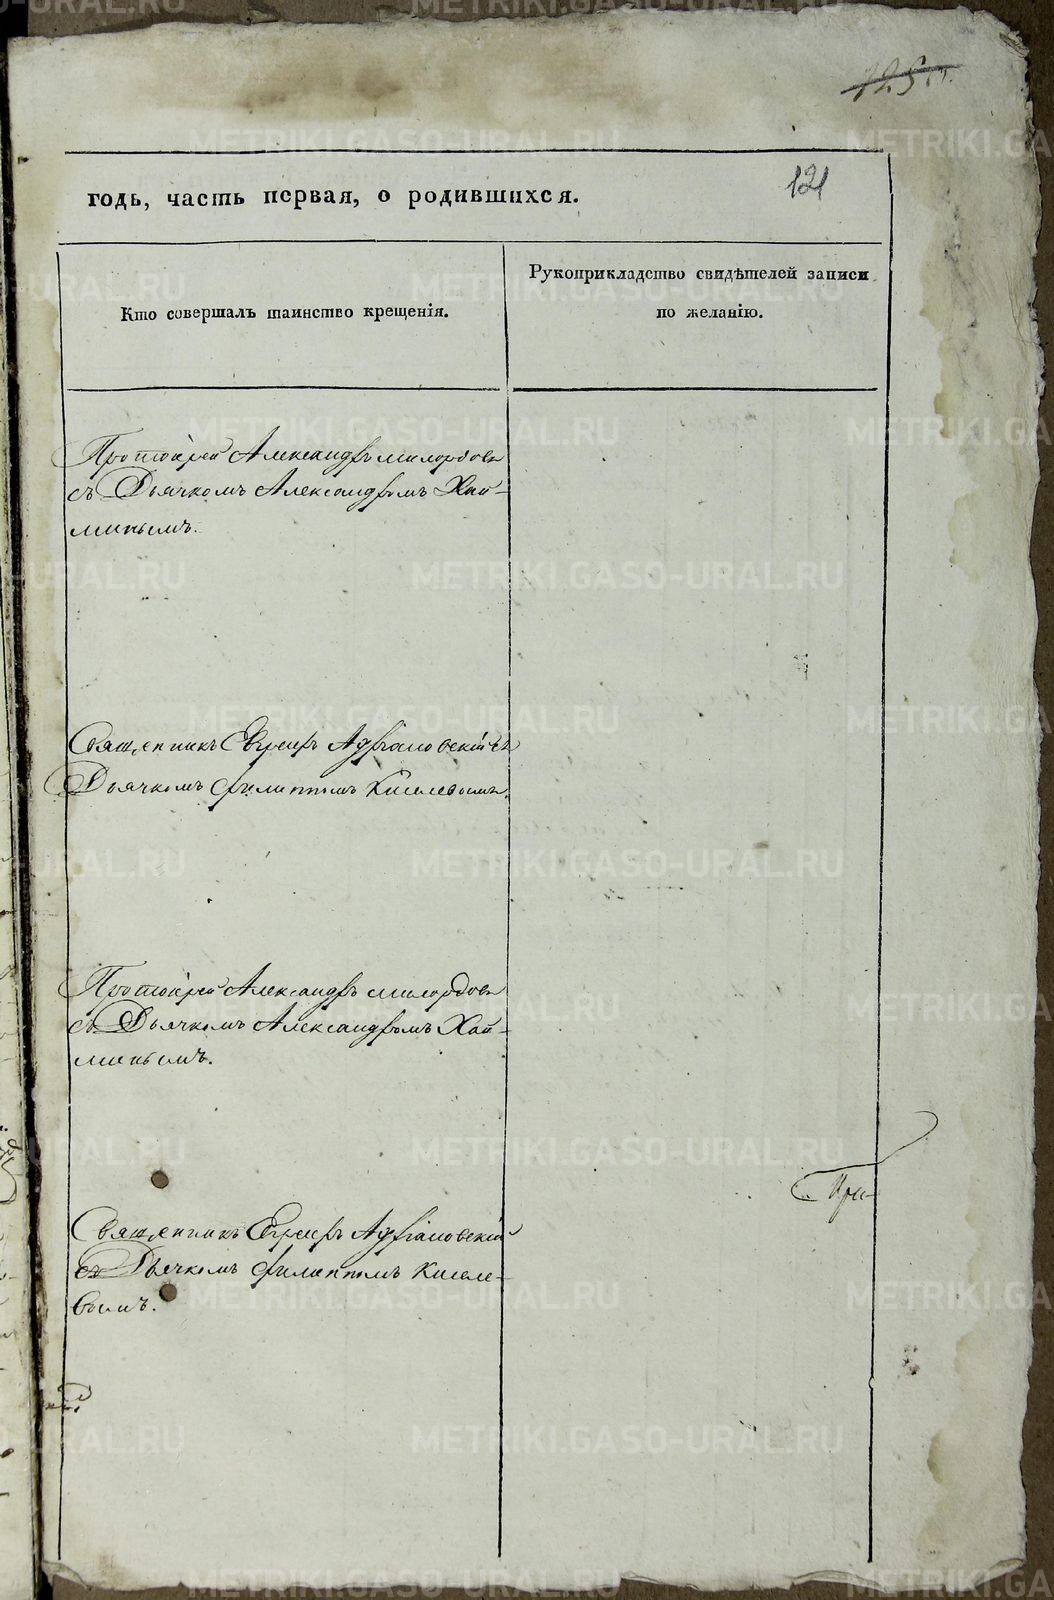 125
121
годъ, часть первая, о родившихся.
Кто совершалъ таинство крещенія.
Рукоприкладство свидѣтелей записи
по желанію.
Протоіерей Александръ Милордовъ
съ Дьячкомъ Александромъ Хай-
минымъ.
Священникъ Евгенръ Адріановскій съ
Дьячкомъ Филиппомъ Киселевымъ.
Протоіерей Александръ Милордовъ
съ Дьячкомъ Александромъ Хай-
минымъ.
Священникъ Адріановскій
съ Дьячкомъ Филиппомъ Киселе-
вымъ.
При-
METRIKI.GASO-URAL.RU